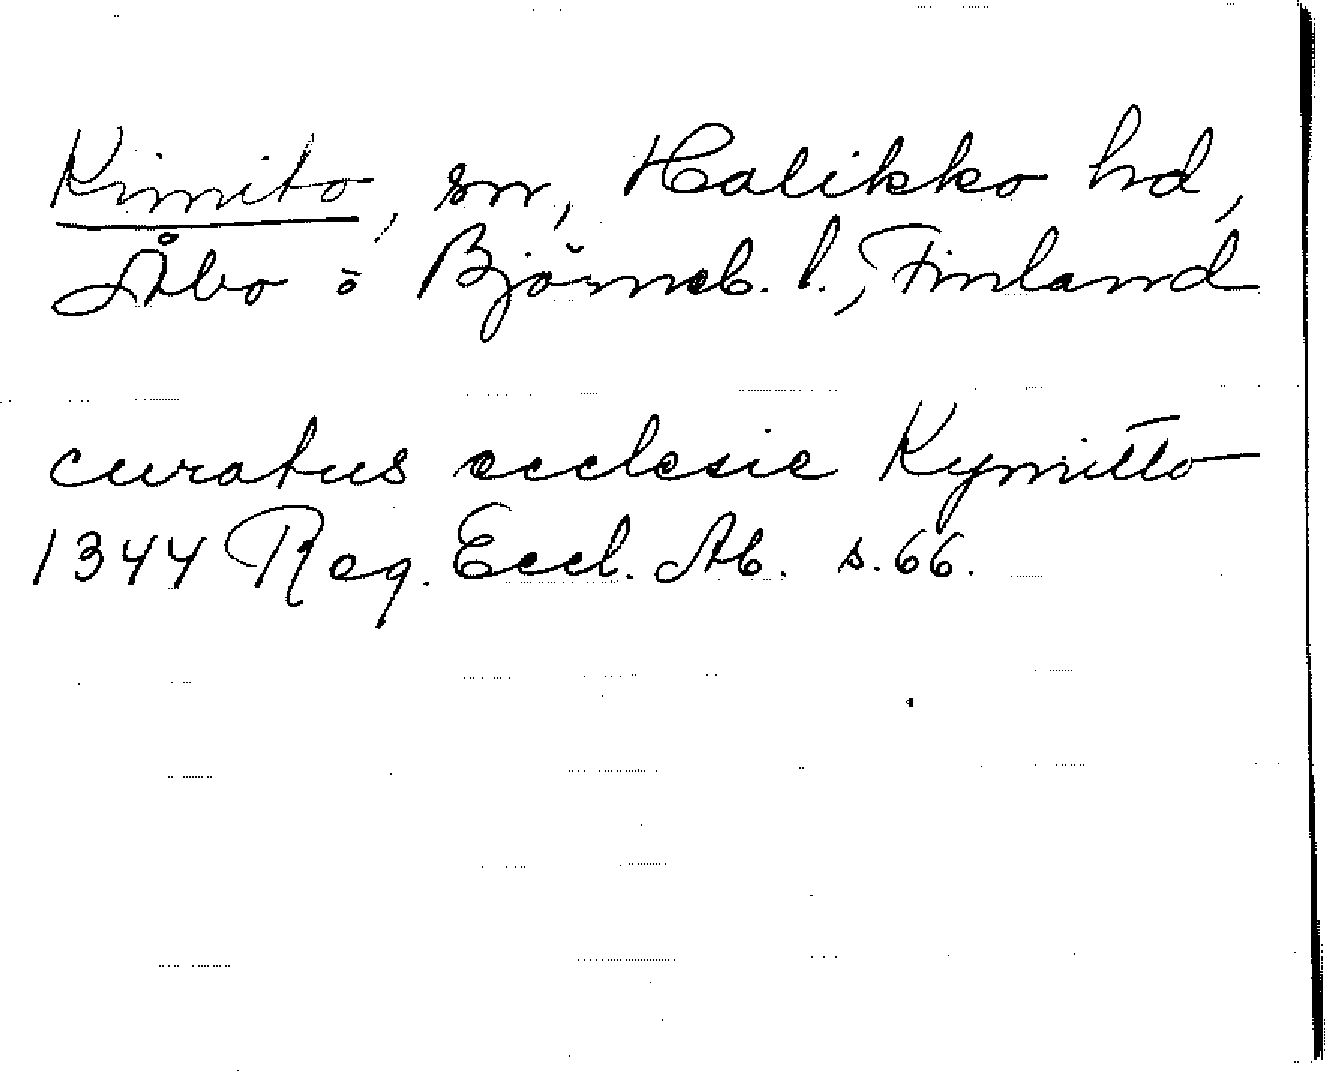 Kimito, sn, Halikko hd,
Åbo o Björneb. l., Finland
curatus ecclesie Kymitto
1344 Reg. Eccl. Ab. s. 66.